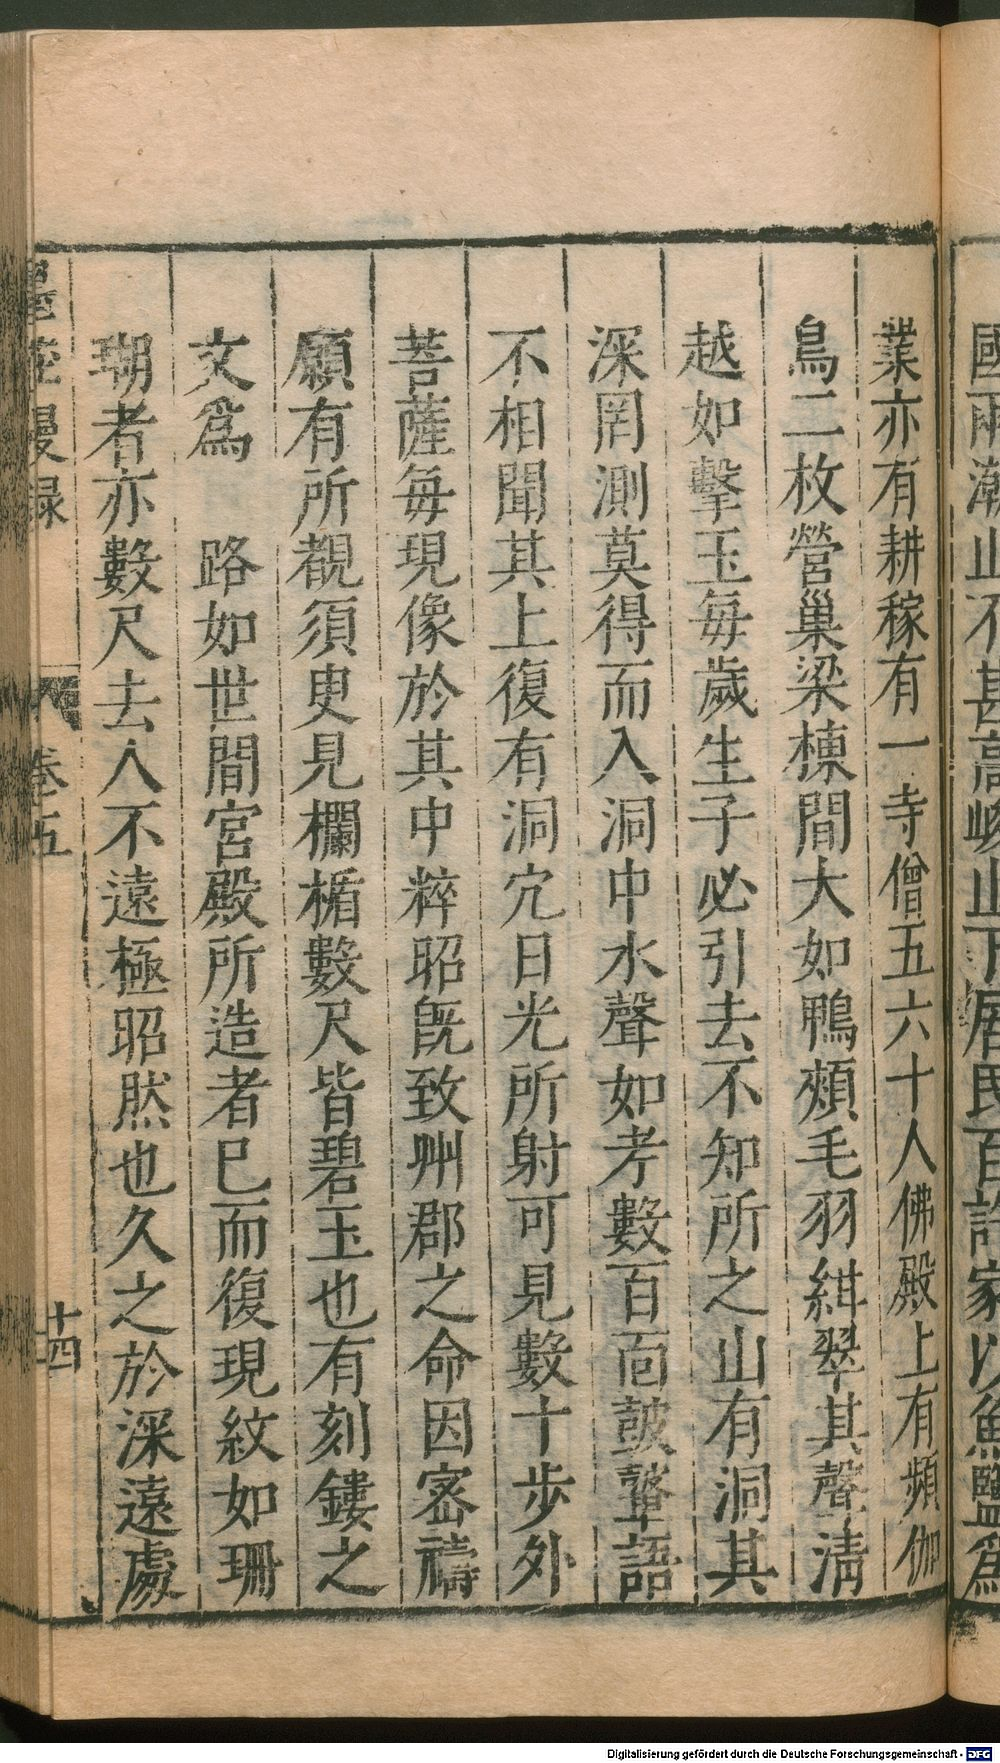 業亦有耕稼有一寺僧五六十人佛殿上有頻伽
鳥二枚營巢梁棟間大如鴨頰毛羽紺翠其聲清
越如擊玉每歲生子必引去不知所之山有洞其
深罔測莫得而入洞中水聲如考數百面鼓鼙語
不相聞其上復有洞穴日光所射可見數十步外
菩薩每現像於其中粹昭旣致州郡之命因密禱
願有所覩須臾見欄楯數尺皆碧玉也有刻鏤之
文爲 路如世間宮殿所造者已而復現紋如珊
瑚者亦數尺去人不遠極昭然也久之於深遠處
墨莊漫録 卷五 十四
Digitalisierung gefördert durch die Deutsche Forschungsgemeinschaft - DFG